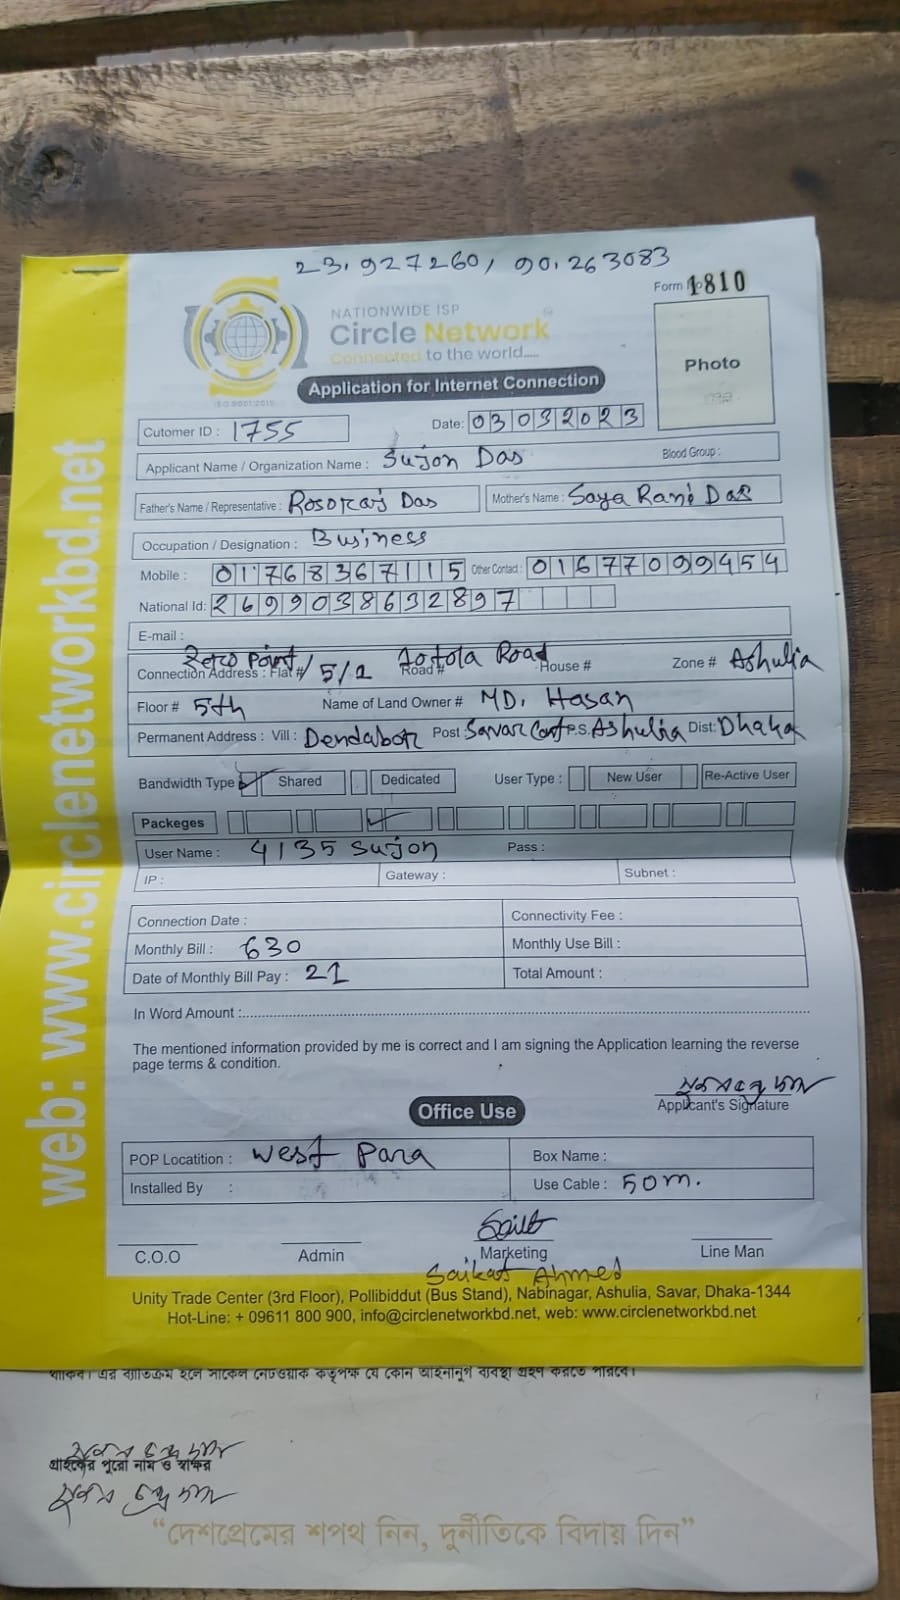 23.927260, 90.263083
Form No 1810
NATIONWIDE ISP
Circle Network
Connected to the world.....
ISO 9001:2015
Photo
Application for Internet Connection
Cutomer ID : 1755
Date: 03032023
Applicant Name / Organization Name : Sujon Das
Blood Group :
Father's Name / Representative : Rosoraj Das
Mother's Name : Saya Rani Das
Occupation / Designation : Business
Mobile : 01768367115
Other Contact : 01677099454
National Id: 2699038632897
E-mail :
Connection Address : Flat # Zero Point / 5/1 Road # Road House # Zone # Ashulia
Floor # 5th Name of Land Owner # MD. Hasan
Permanent Address : Vill : Dendabor Post : Savar Cant P.S. Ashulia Dist: Dhaka
Bandwidth Type Shared Dedicated User Type : New User Re-Active User
Packeges
User Name : 4135 Sujon Pass :
IP : Gateway : Subnet :
Connection Date : Connectivity Fee :
Monthly Bill : 630 Monthly Use Bill :
Date of Monthly Bill Pay : 21 Total Amount :
In Word Amount :
The mentioned information provided by me is correct and I am signing the Application learning the reverse
page terms & condition.
Applicant's Signature
Office Use
POP Locatition : West Para Box Name :
Installed By : Use Cable : 50m.
C.O.O Admin Marketing Line Man
Saikat Ahmed
Unity Trade Center (3rd Floor), Pollibiddut (Bus Stand), Nabinagar, Ashulia, Savar, Dhaka-1344
Hot-Line: + 09611 800 900, info@circlenetworkbd.net, web: www.circlenetworkbd.net
web: www.circlenetworkbd.net
থাকিব। এর ব্যতিক্রম হলে সার্কেল নেটওয়ার্ক কতৃপক্ষ যে কোন আইনানুগ ব্যবস্থা গ্রহণ করতে পারবে।
গ্রাহকের পুরো নাম ও স্বাক্ষর
“দেশপ্রেমের শপথ নিন, দুর্নীতিকে বিদায় দিন”